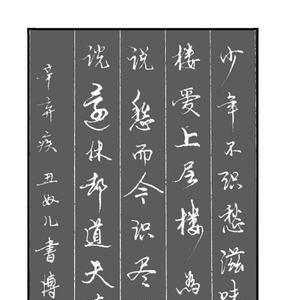 少年不识愁滋味
楼爱上层楼為
说愁而今识尽
说還休却道天
辛弃疾 丑奴儿 書博